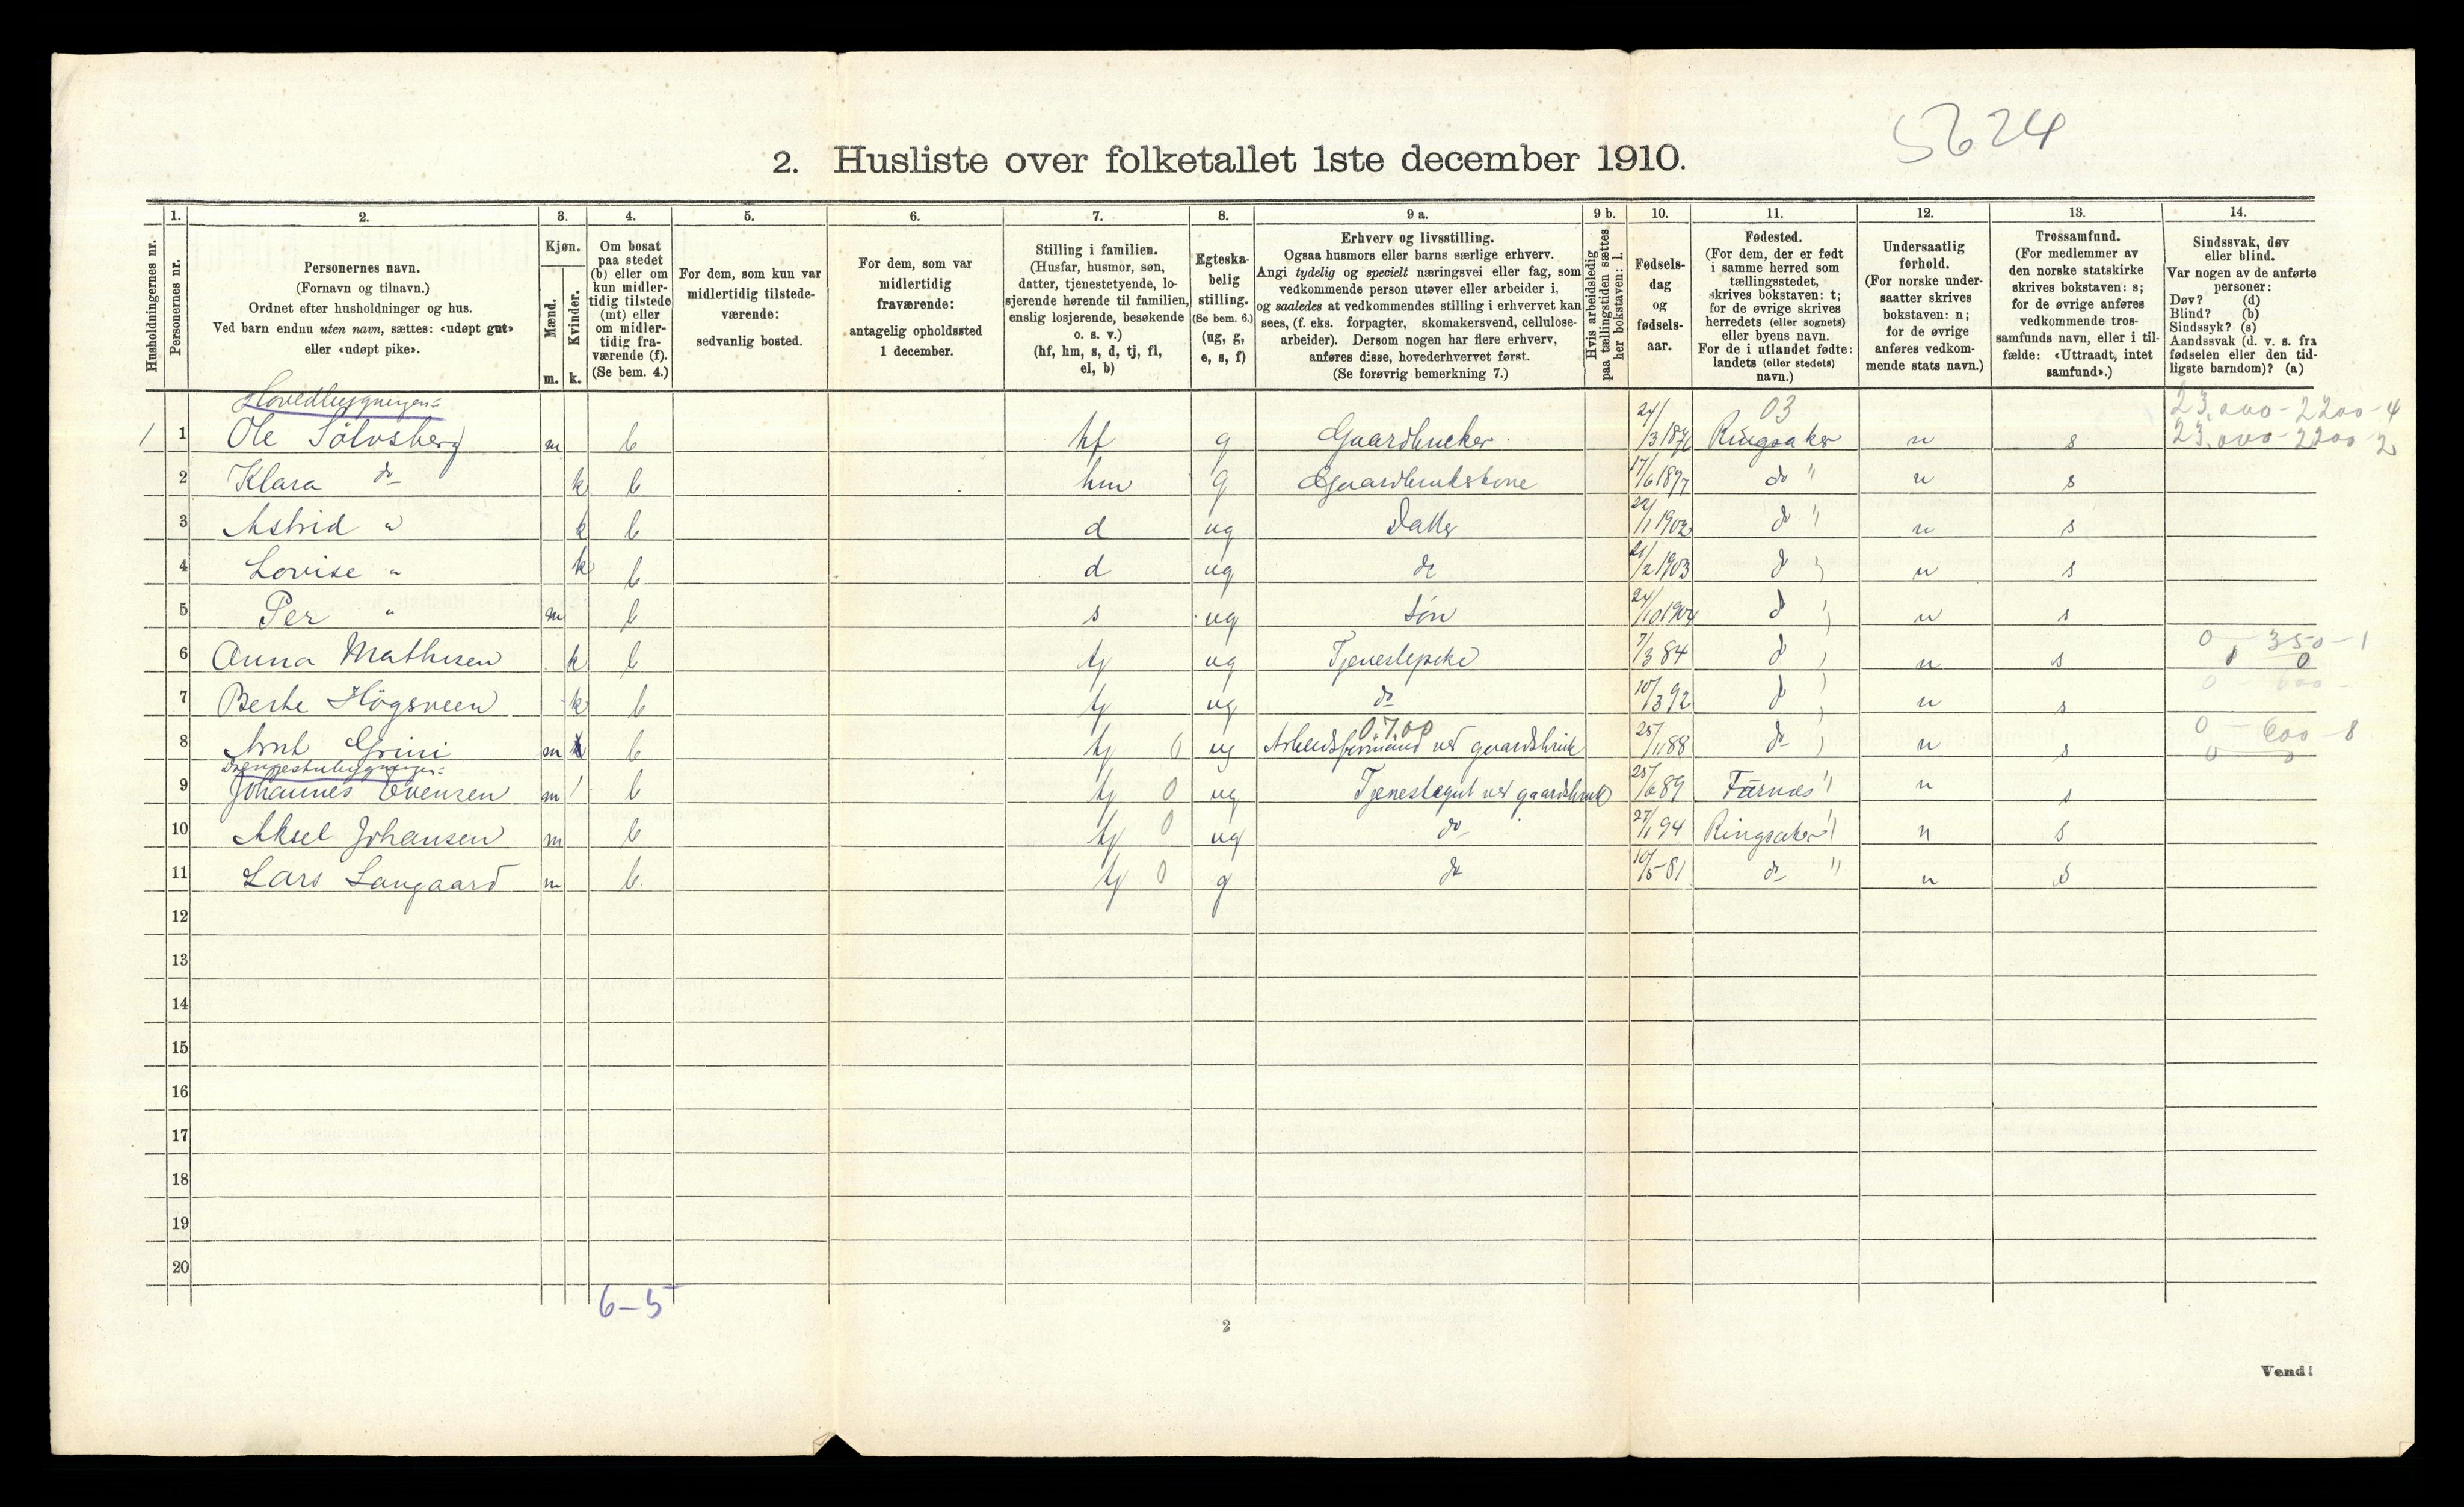 5624
2. Husliste over folketallet 1ste december 1910.
1. 2. 3. 4. 5. 6. 7. 8. 9 a. 9 b. 10. 11. 12. 13. 14.
Husholdningernes nr.
Personernes nr.
Personernes navn.
(Fornavn og tilnavn.)
Ordnet efter husholdninger og hus.
Ved barn endnu uten navn, sættes: «udøpt gut»
eller «udøpt pike».
Kjøn.
Mænd.
m.
Kvinder.
k.
Om bosat
paa stedet
(b) eller om
kun midler-
tidig tilstede
(mt) eller
om midler-
tidig fra-
værende (f).
(Se bem. 4.)
For dem, som kun var
midlertidig tilstede-
værende:
sedvanlig bosted.
For dem, som var
midlertidig
fraværende:
antagelig opholdssted
1 december.
Stilling i familien.
(Husfar, husmor, søn,
datter, tjenestetyende, lo-
sjerende hørende til familien,
enslig losjerende, besøkende
o. s. v.)
(hf, hm, s, d, tj, fl,
el, b)
Egteska-
belig
stilling.
(Se bem. 6.)
(ug, g,
e, s, f)
Erhverv og livsstilling.
Ogsaa husmors eller barns særlige erhverv.
Angi tydelig og specielt næringsvei eller fag, som
vedkommende person utøver eller arbeider i,
og saaledes at vedkommendes stilling i erhvervet kan
sees, (f. eks. forpagter, skomakersvend, cellulose-
arbeider). Dersom nogen har flere erhverv,
anføres disse, hovederhvervet først.
(Se forøvrig bemerkning 7.)
Hvis arbeidsledig
paa tællingstiden sættes
her bokstaven: l.
Fødsels-
dag
og
fødsels-
aar.
Fødested.
(For dem, der er født
i samme herred som
tællingsstedet,
skrives bokstaven: t;
for de øvrige skrives
herredets (eller sognets)
eller byens navn.
For de i utlandet fødte:
landets (eller stedets)
navn.)
Undersaatlig
forhold.
(For norske under-
saatter skrives
bokstaven: n;
for de øvrige
anføres vedkom-
mende stats navn.)
Trossamfund.
(For medlemmer av
den norske statskirke
skrives bokstaven: s;
for de øvrige anføres
vedkommende tros-
samfunds navn, eller i til-
fælde: «Uttraadt, intet
samfund».)
Sindssvak, døv
eller blind.
Var nogen av de anførte
personer:
Døv? (d)
Blind? (b)
Sindssyk? (s)
Aandssvak (d. v. s. fra
fødselen eller den tid-
ligste barndom)? (a)
Hovedbygningen: 03 23,000-2200-4
1 1 Ole Sölvsberg m b hf g Gaardbruker 24/3 1876 Ringsaker n s 23,000-2200-2
2 Klara do k b hm g Gaardbrukskone 17/6 1877 do " n s
3 Astrid " k b d ug Datter 22/1 1902 do " n s
4 Lovise " k b d ug do 21/2 1903 do n s
5 Per " m b s ug Søn 24/10 1904 do n s
6 Anna Mathisen k b tj ug Tjenestepike 7/3 84 do n s 0 - 350 - 1
7 Berte Högsveen k b tj ug do 10/3 92 do n s 0 - 600 -
0700
8 Arnt Grini m b tj 0 ug Arbeidsformand ved gaardsbruk 25/11 88 do n s 0 - 600 - 8
Drengestubygningen:
9 Johannes Evensen m b tj 0 ug Tjenestegut ved gaardsbruk 25/6 89 Furnes " n s
10 Aksel Johansen m b tj 0 ug do 27/1 94 Ringsaker " n s
11 Lars Langaard m b tj 0 g do 10/5-81 do " n s
12
13
14
15
16
17
18
19
20
6-5
2
Vend!